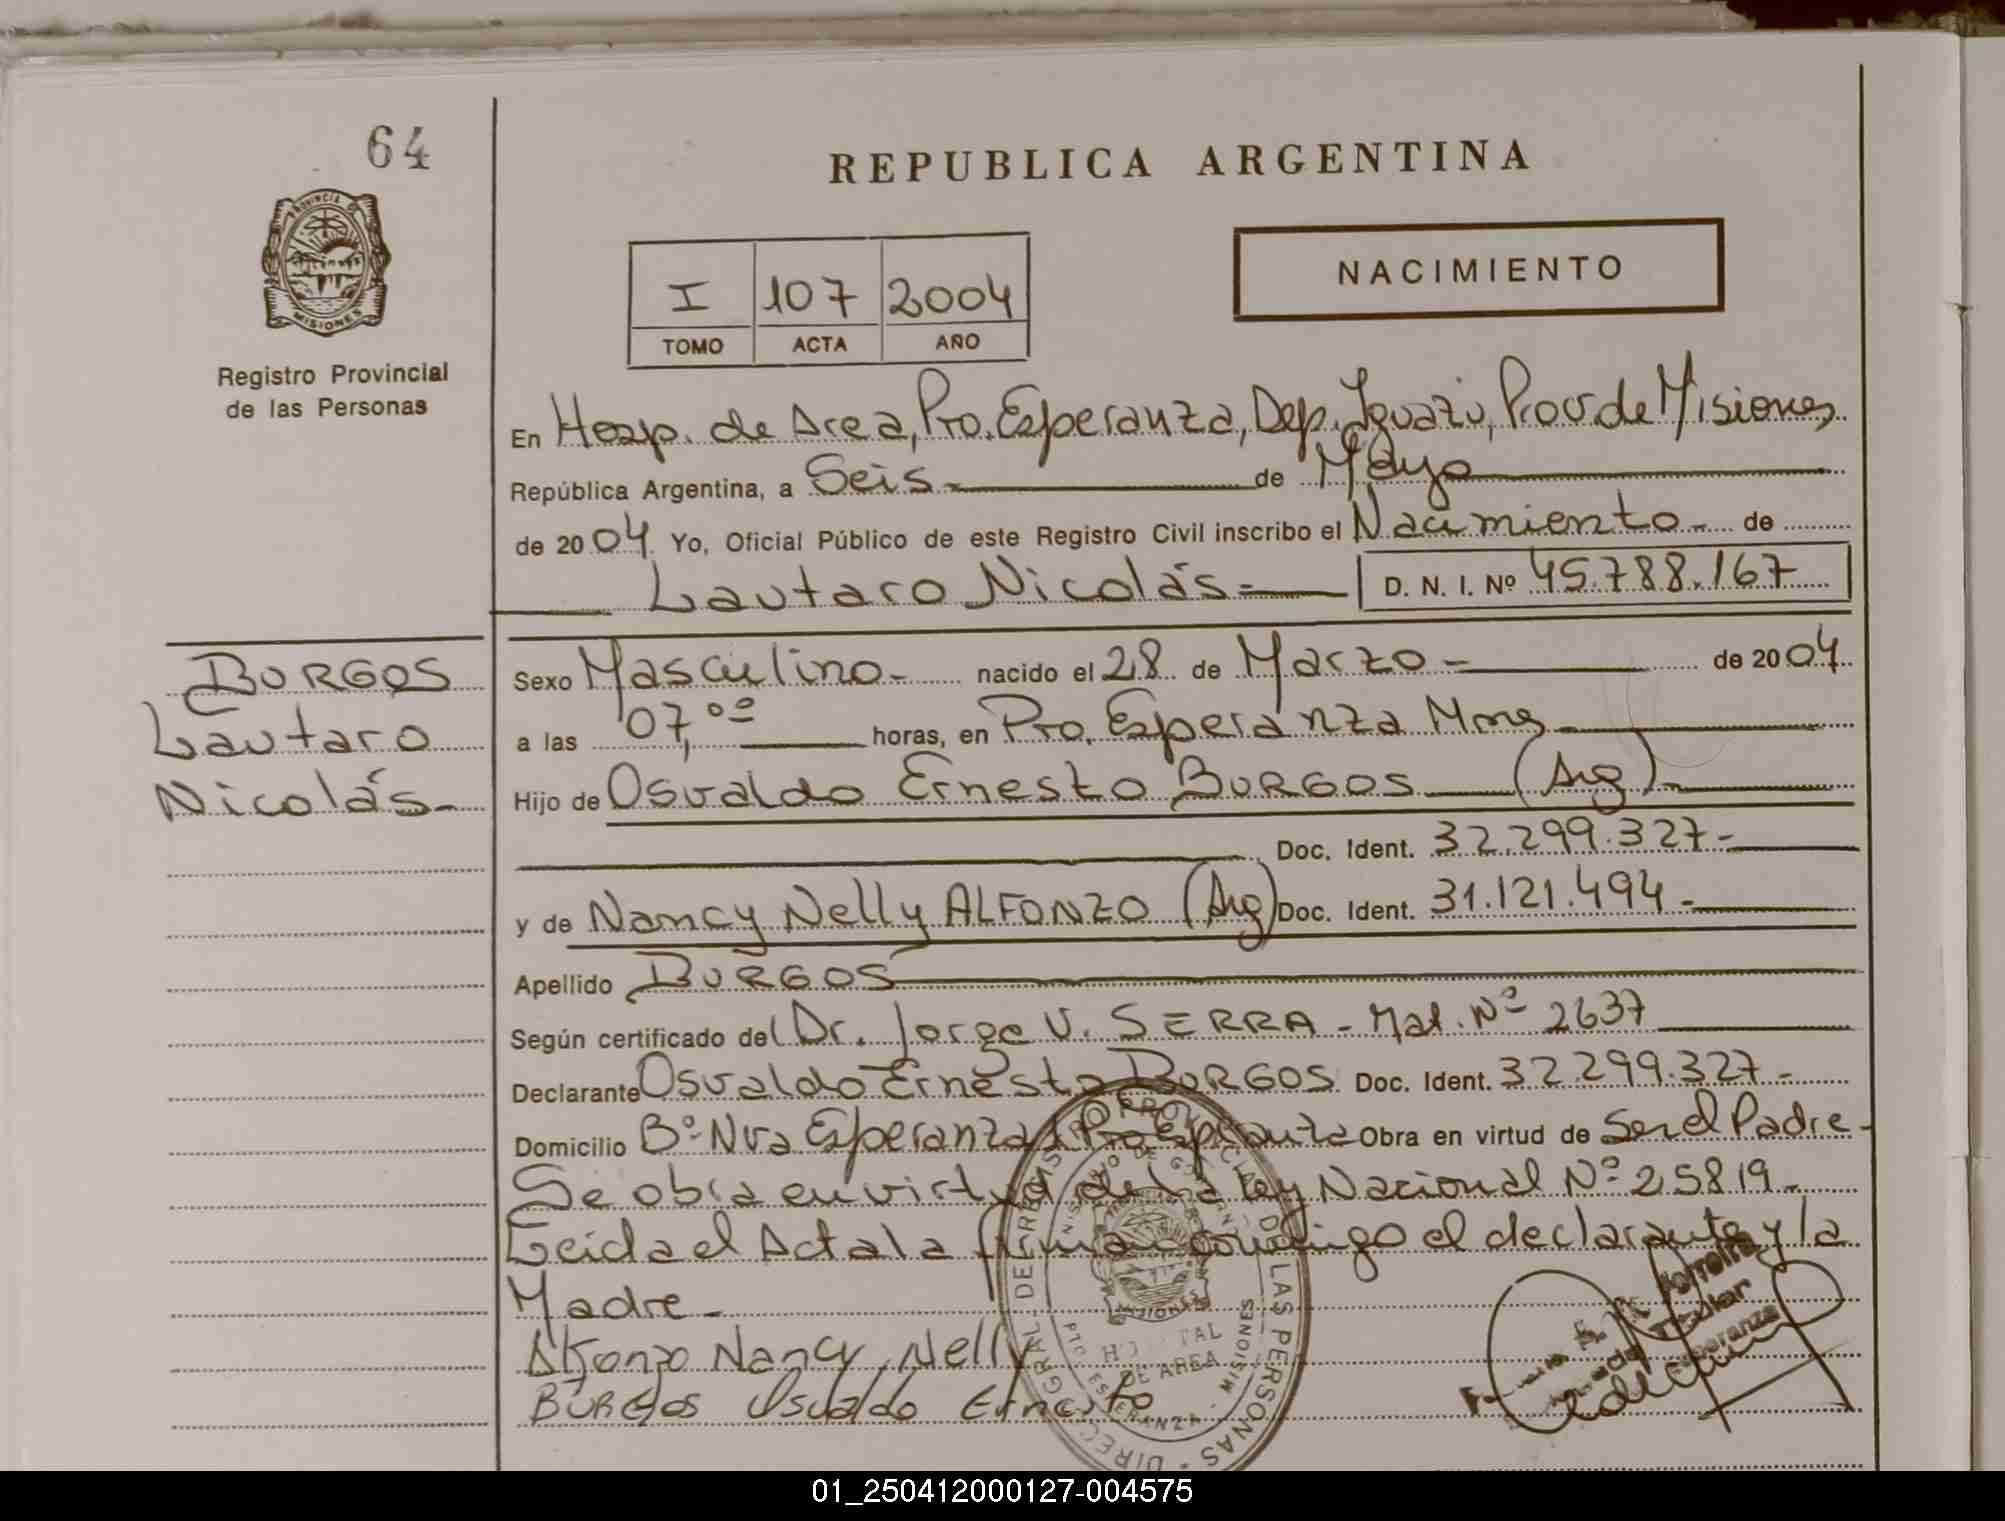 64
REPUBLICA ARGENTINA
PROVINCIA DE
MISIONES
Registro Provincial
de las Personas
I 107 2004
TOMO ACTA AÑO
NACIMIENTO
En Hosp. de Area, Pto. Esperanza, Dep. Iguazu, Prov de Misiones
República Argentina, a Seis - de Mayo
de 2004 Yo, Oficial Público de este Registro Civil inscribo el Nacimiento - de
Lautaro Nicolás = D. N. I. Nº 45.788.167
BURGOS
Lautaro
Nicolás -
Sexo Masculino - nacido el 28 de Marzo - de 2004
a las 07,ºº horas, en Pto. Esperanza Mnes
Hijo de Osvaldo Ernesto BURGOS (Arg)
Doc. Ident. 32.299.327 -
y de Nancy Nelly ALFONZO (Arg) Doc. Ident. 31.121.494 -
Apellido BURGOS
Según certificado del Dr. Jorge V. SERRA - Mat. Nº 2637
Declarante Osvaldo Ernesto BURGOS Doc. Ident. 32.299.327 -
Domicilio Bº Nva Esperanza Pto Esperanza Obra en virtud de Ser el Padre -
Se obra en virtud de la Ley Nacional Nº 25819 -
Leida el Acta la firman conmigo el declarante y la
Madre -
Alfonzo Nancy Nelly
BURGOS Osvaldo Ernesto
HOSPITAL
DE AREA
PTO ESPERANZA - MISIONES
DE LAS PERSONAS
Titular
Esperanza
01_250412000127-004575